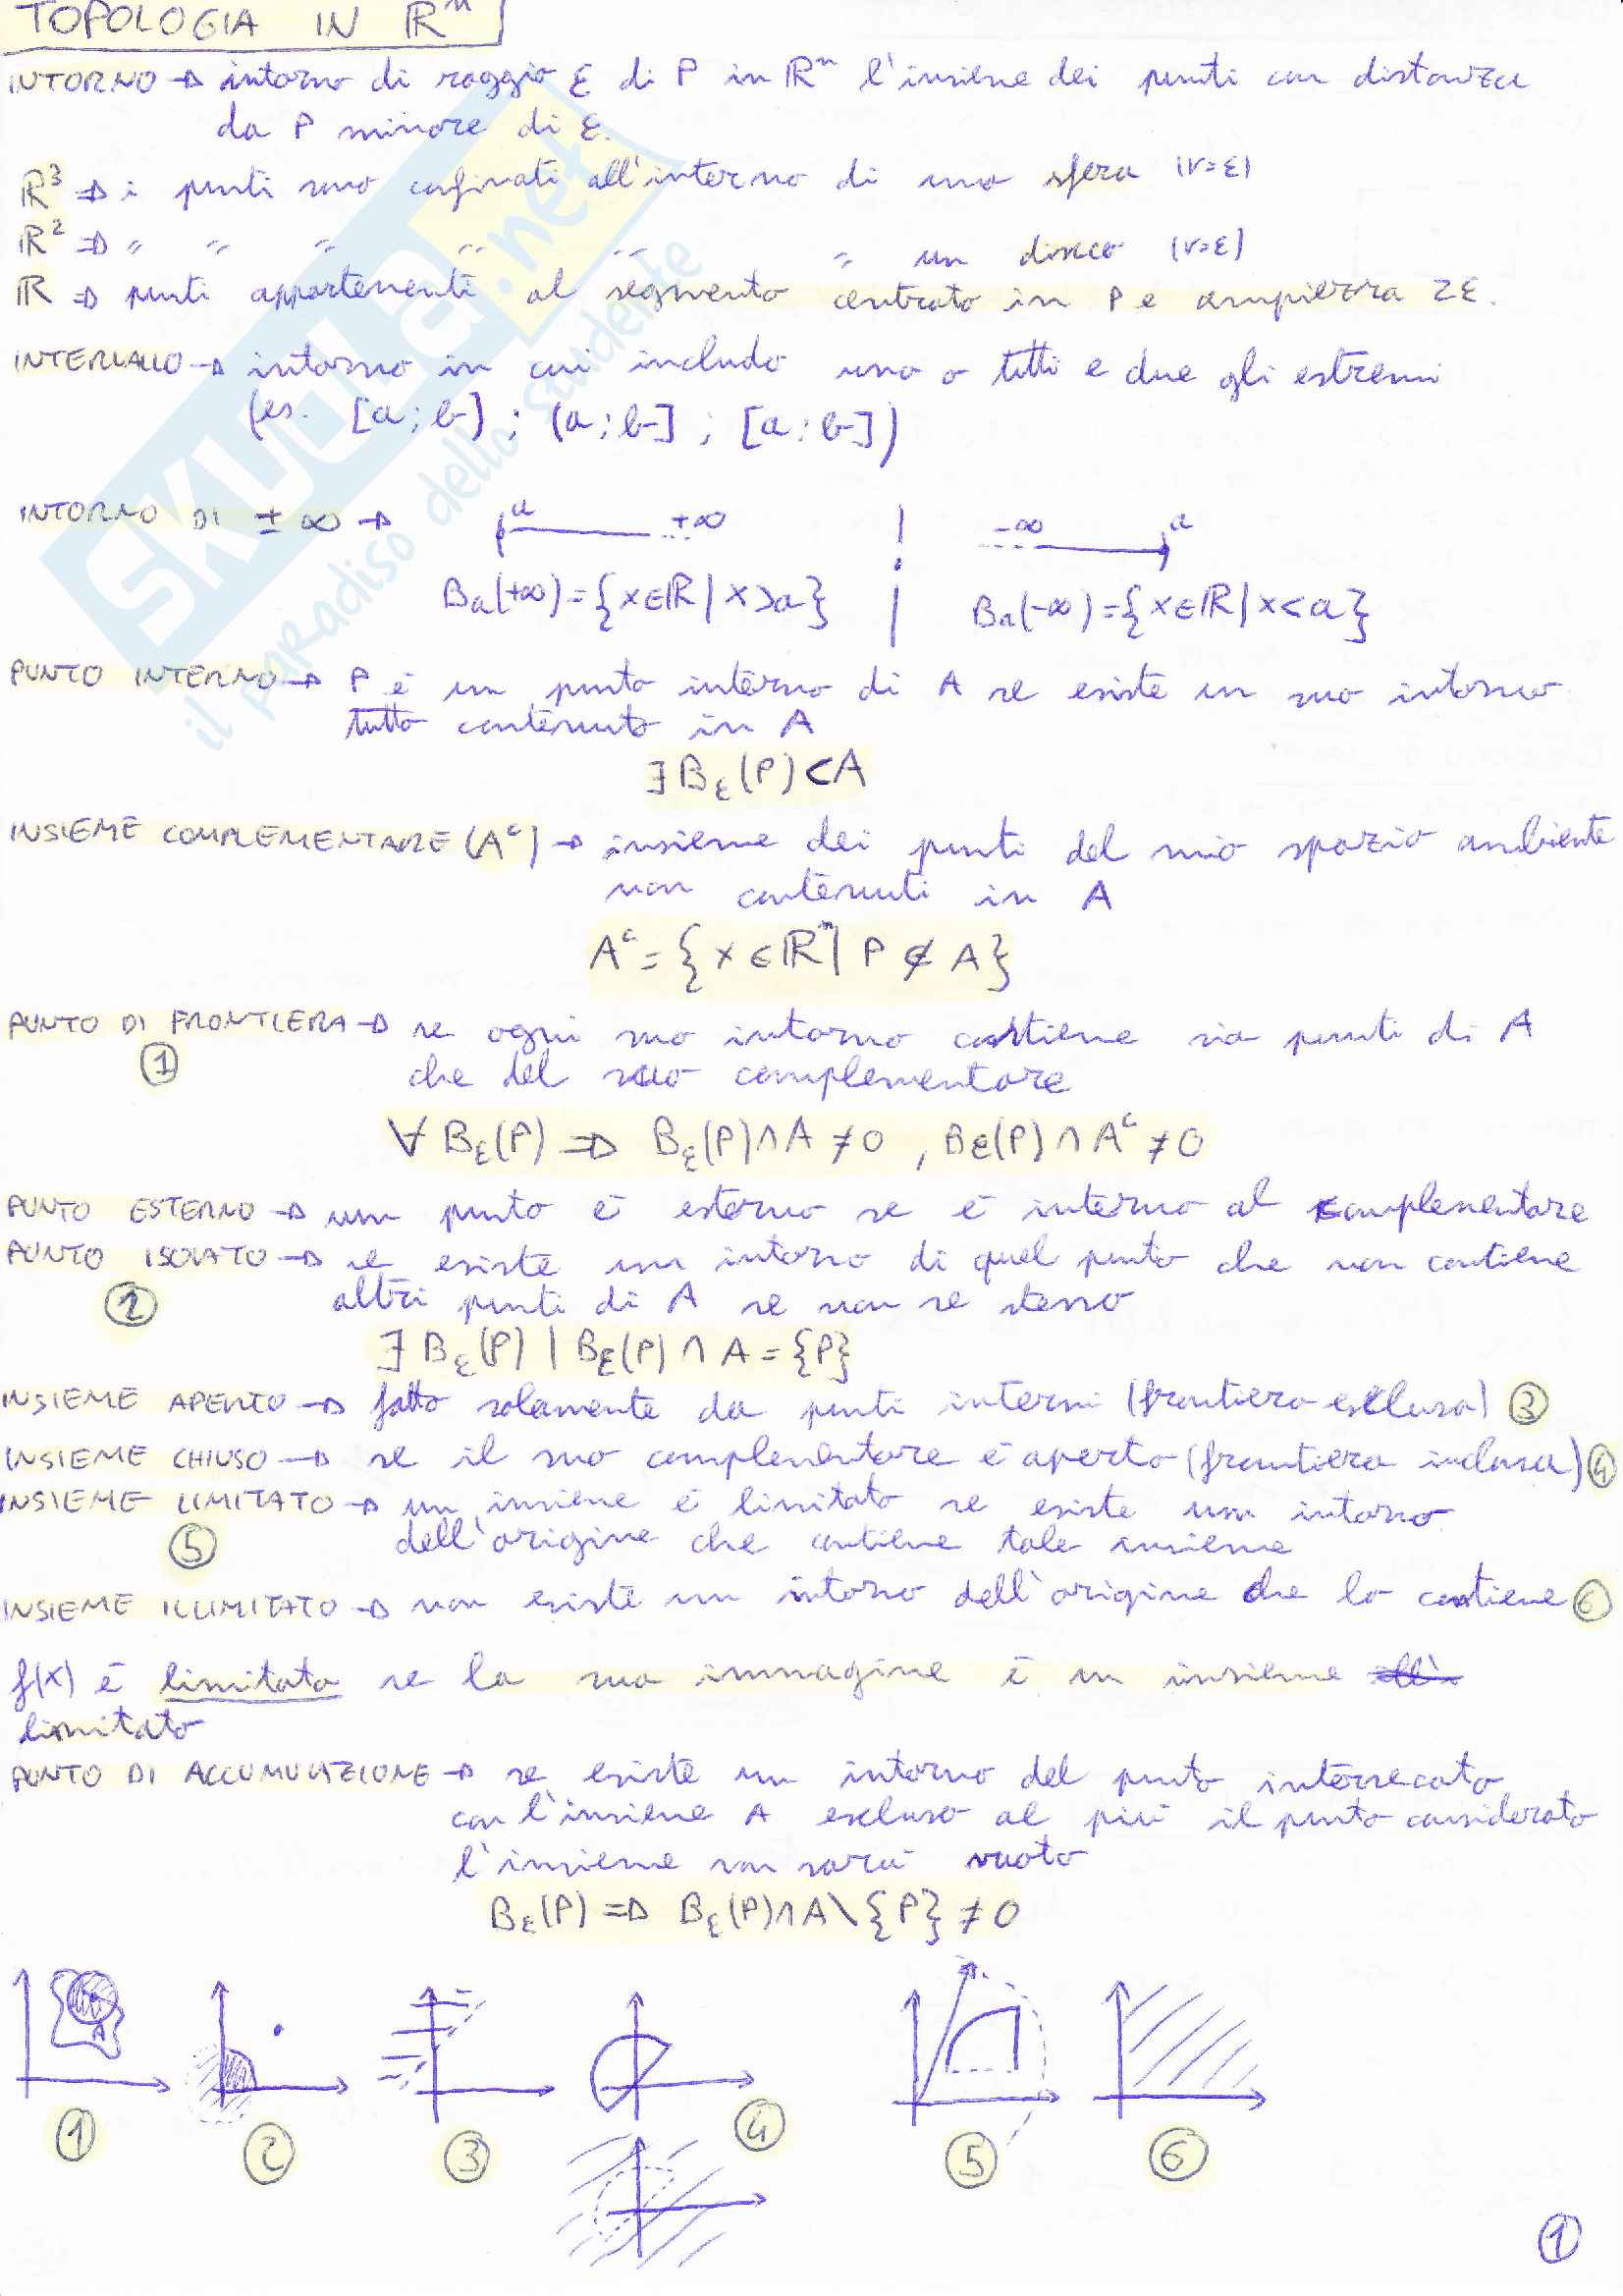 TOPOLOGIA IN ℝⁿ
INTORNO → intorno di raggio ε di P in ℝⁿ l'insieme dei punti con distanza
da P minore di ε.
ℝ³ ⇒ i punti sono confinati all'interno di una sfera (r=ε)
ℝ² ⇒ " " " " " " un disco (r=ε)
ℝ ⇒ punti appartenenti al segmento centrato in P e ampiezza 2ε.
INTERVALLO → intorno in cui includo uno o tutti e due gli estremi
(es. [a;b) ; (a;b] ; [a:b])
INTORNO DI ±∞ → a +∞ | -∞ a
Ba(+∞)={x∈ℝ | x>a} | Ba(-∞)={x∈ℝ | x<a}
PUNTO INTERNO → P è un punto interno di A se esiste un suo intorno
tutto contenuto in A
∃ Bε(P) ⊂ A
INSIEME COMPLEMENTARE (Aᶜ) → insieme dei punti del mio spazio ambiente
non contenuti in A
Aᶜ = {x ∈ ℝⁿ | P ∉ A}
PUNTO DI FRONTIERA → se ogni suo intorno contiene sia punti di A
① che del suo complementare
∀ Bε(P) ⇒ Bε(P)∩A ≠ 0 , Bε(P)∩Aᶜ ≠ 0
PUNTO ESTERNO → un punto è esterno se è interno al complementare
PUNTO ISOLATO → se esiste un intorno di quel punto che non contiene
② altri punti di A se non se stesso
∃ Bε(P) | Bε(P) ∩ A = {P}
INSIEME APERTO → fatto solamente da punti interni (frontiera esclusa) ③
INSIEME CHIUSO → se il suo complementare è aperto (frontiera inclusa) ④
INSIEME LIMITATO → un insieme è limitato se esiste un intorno
⑤ dell'origine che contiene tale insieme
INSIEME ILLIMITATO → non esiste un intorno dell'origine che lo contiene ⑥
f(x) è limitata se la sua immagine è un insieme
limitato
PUNTO DI ACCUMULAZIONE → se esiste un intorno del punto intersecato
con l'insieme A escluso al più il punto considerato
l'insieme non sarà vuoto
Bε(P) ⇒ Bε(P)∩A\{P} ≠ 0
A
① ② ③ ④ ⑤ ⑥
①
SKUOLA.net
il paradiso dello studente